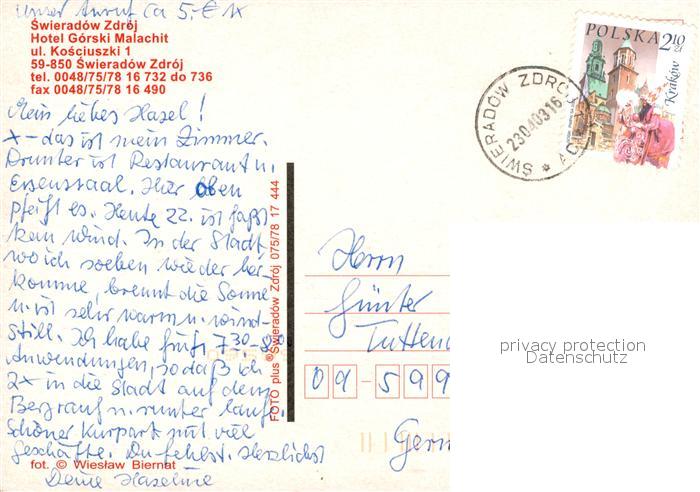 unser Anruf ca 5.- € !x
Świeradów Zdrój
Hotel Górski Malachit
ul. Kościuszki 1
59-850 Świeradów Zdrój
tel. 0048/75/78 16 732 do 736
fax 0048/75/78 16 490
Mein liebes Hasel !
x – das ist mein Zimmer.
Drunter ist Restaurant u.
Essenssaal. Hier oben
pfeift es. Heute 22. ist fasst
kein Wind. In der Stadt,
wo ich soeben wieder her-
komme, brennt die Sonne
u. ist sehr warm u. wind-
still. Ich habe früh 7³⁰-
Anwendungen, sodaß ich
2x in die Stadt auf dem
Berg rauf u. runter laufe.
Schöner Kurpark mit viel
Geschäfte. Du fehlst. Herzlichst
Deine Haseline
fot. © Wiesław Biernat
FOTO plus ® Świeradów Zdrój 075/78 17 444
POLSKA
2,10 zł
Kraków
ŚWIERADÓW ZDRÓJ
230403 16
Herrn
Günter
Tutten
09-599
Germ
privacy protection
Datenschutz